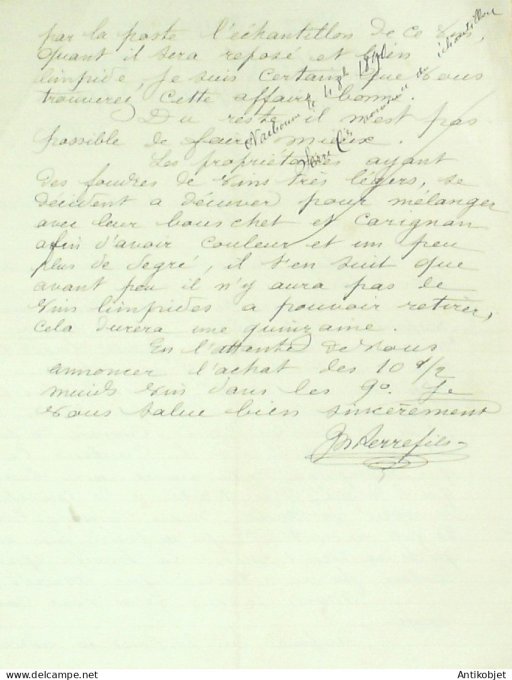 par la poste l'échantillon de ce vin,
Quant il sera reposé et bien
limpide, je suis certain que vous
trouverez cette affaire bonne.
Du reste il m'est pas
possible de faire mieux.
Narbonne le 4 9bre
échantillon
Les propriétaires ayant
des foudres de vins très légers, se
décident a décuver pour mélanger
avec leur bouschet et carignan
afin d'avoir couleur et un peu
plus de degré, il s'en suit que
avant peu il n'y aura pas de
vins limpides a pouvoir retirer,
cela durera une quinzaine.
En l'attente de vous
annoncer l'achat des 10 1/2
muids vin dans les 9°. Je
vous salue bien sincèrement
Antikobjet